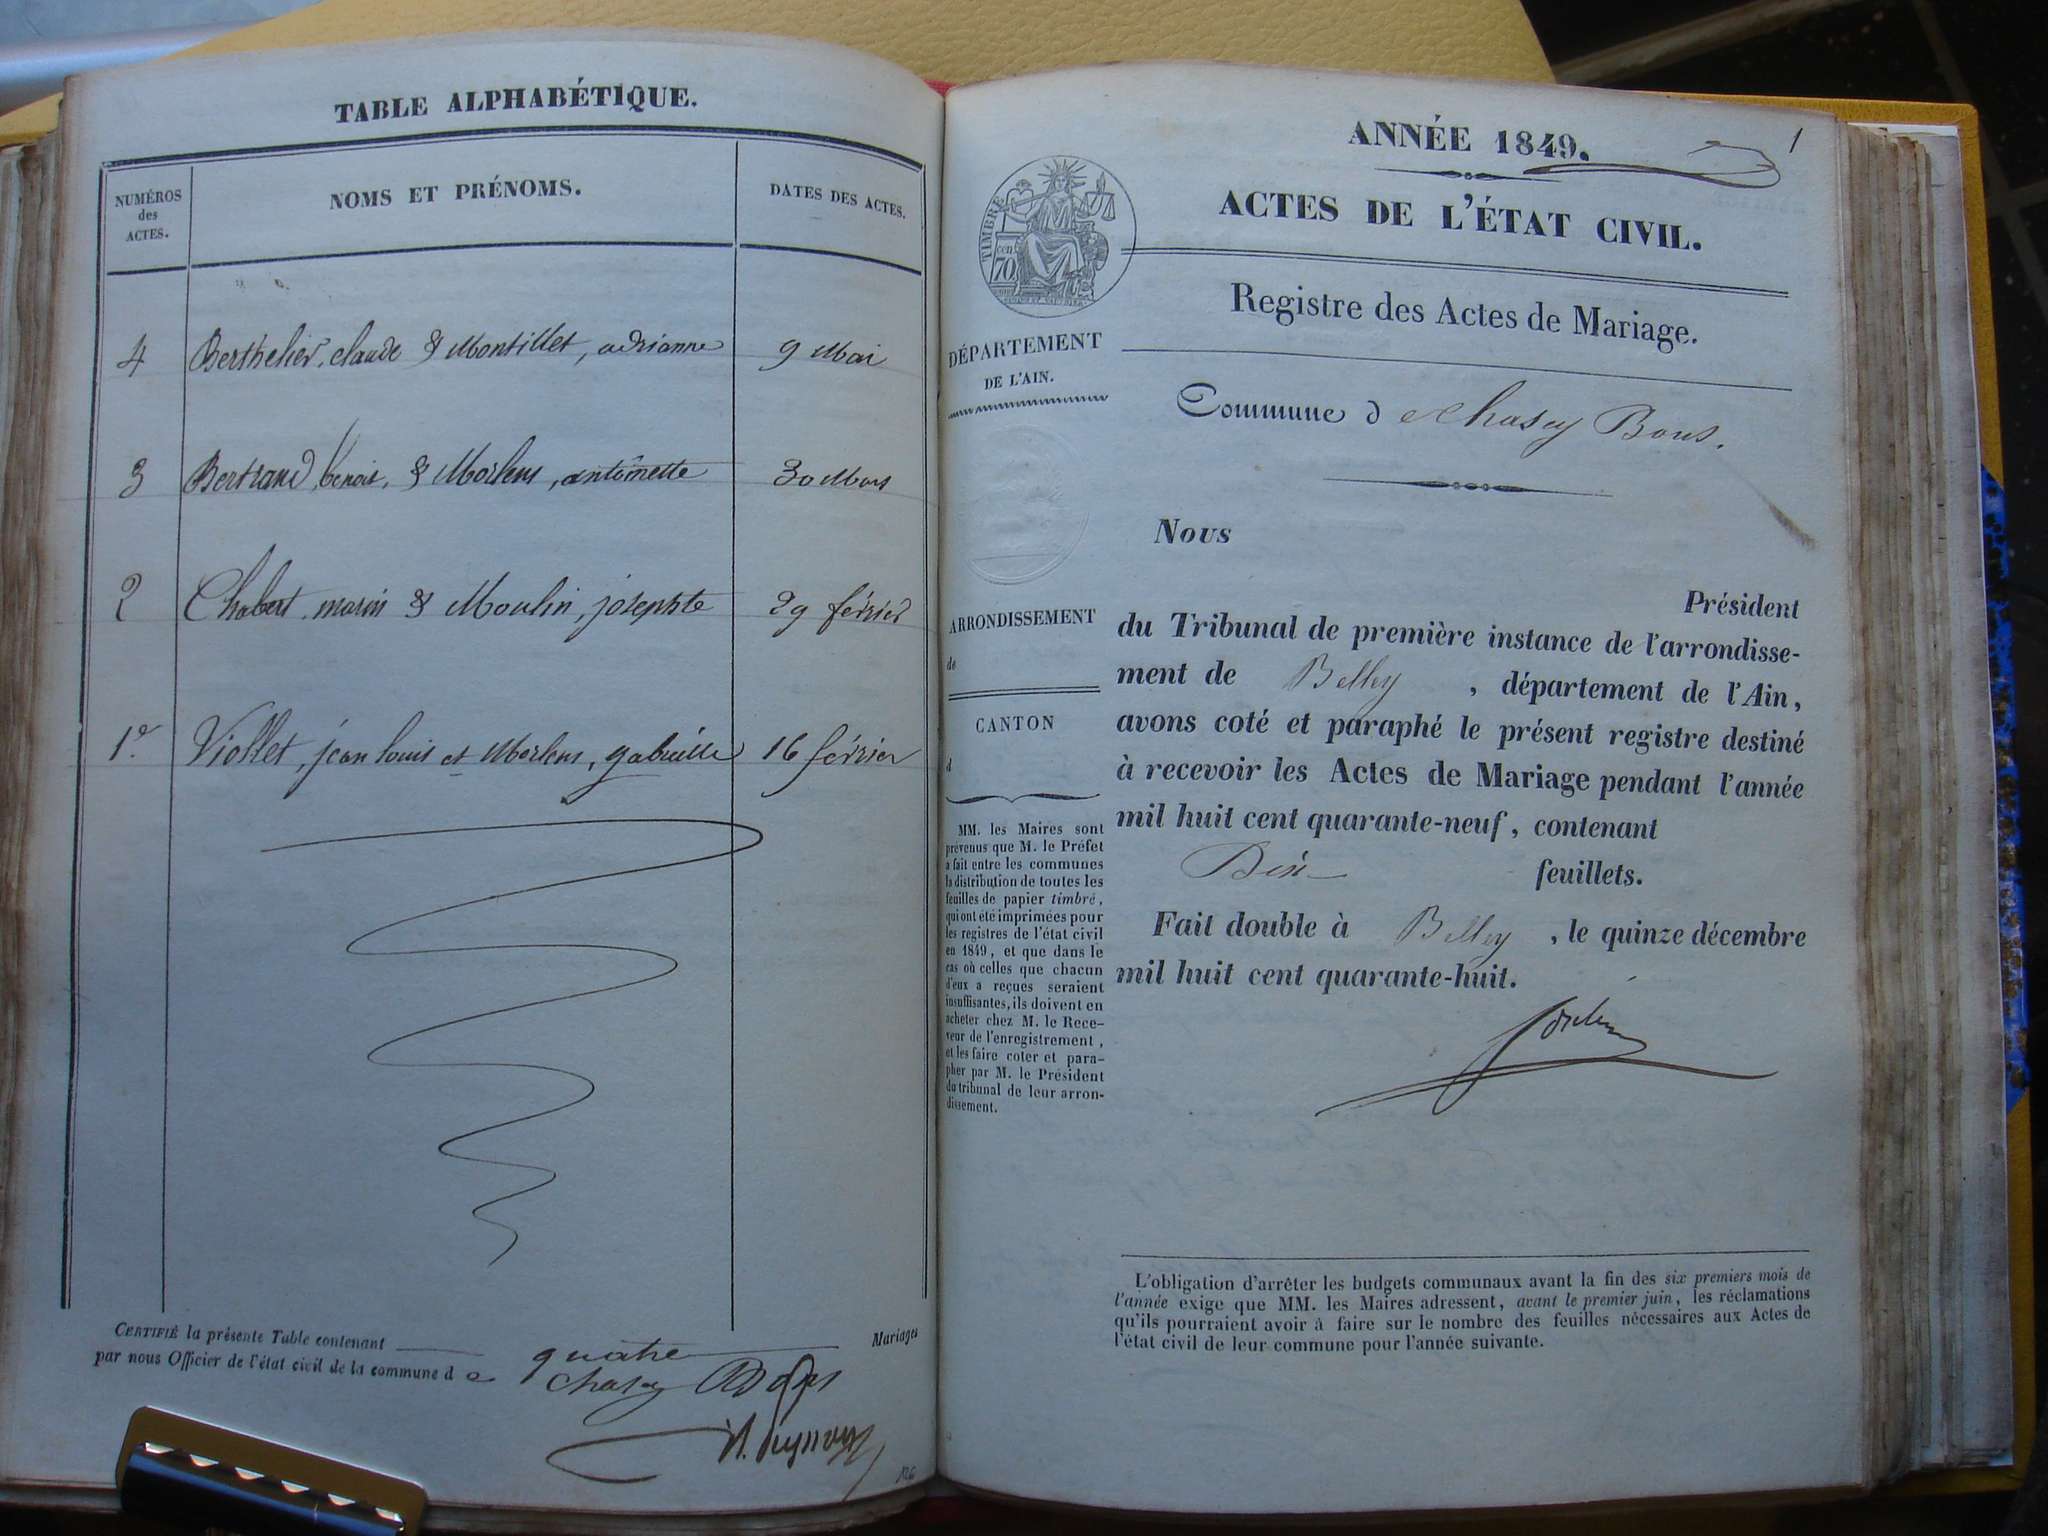 TABLE ALPHABÉTIQUE.
NUMÉROS
des
ACTES.
NOMS ET PRÉNOMS.
DATES DES ACTES.
4 Berthelier, claude & Montillet, adrianne 9 Mai
3 Bertrand, benoit, & Morlens, antoinette 30 Mars
2 Chabert, marin & Moulin, josephte 29 février
1º Viollet, jean louis et Morlens, gabrielle 16 février
CERTIFIÉ la présente Table contenant quatre Mariages
par nous Officier de l'état civil de la commune d e Chasey Bons
126
1
ANNÉE 1849.
ACTES DE L'ÉTAT CIVIL.
Registre des Actes de Mariage.
TIMBRE
70
cen
DÉPARTEMENT
DE L'AIN.
Commune d e Chasey Bons.
Nous
Président
du Tribunal de première instance de l'arrondisse-
ment de Belley, département de l'Ain,
avons coté et paraphé le présent registre destiné
à recevoir les Actes de Mariage pendant l'année
mil huit cent quarante-neuf, contenant
Dix feuillets.
Fait double à Belley, le quinze décembre
mil huit cent quarante-huit.
ARRONDISSEMENT
de
CANTON
d
MM. les Maires sont
prévenus que M. le Préfet
a fait entre les communes
la distribution de toutes les
feuilles de papier timbré,
qui ont été imprimées pour
les registres de l'état civil
en 1849, et que dans le
cas où celles que chacun
d'eux a reçues seraient
insuffisantes, ils doivent en
acheter chez M. le Rece-
veur de l'enregistrement,
et les faire coter et para-
pher par M. le Président
du tribunal de leur arron-
dissement.
L'obligation d'arrêter les budgets communaux avant la fin des six premiers mois de
l'année exige que MM. les Maires adressent, avant le premier juin, les réclamations
qu'ils pourraient avoir à faire sur le nombre des feuilles nécessaires aux Actes de
l'état civil de leur commune pour l'année suivante.